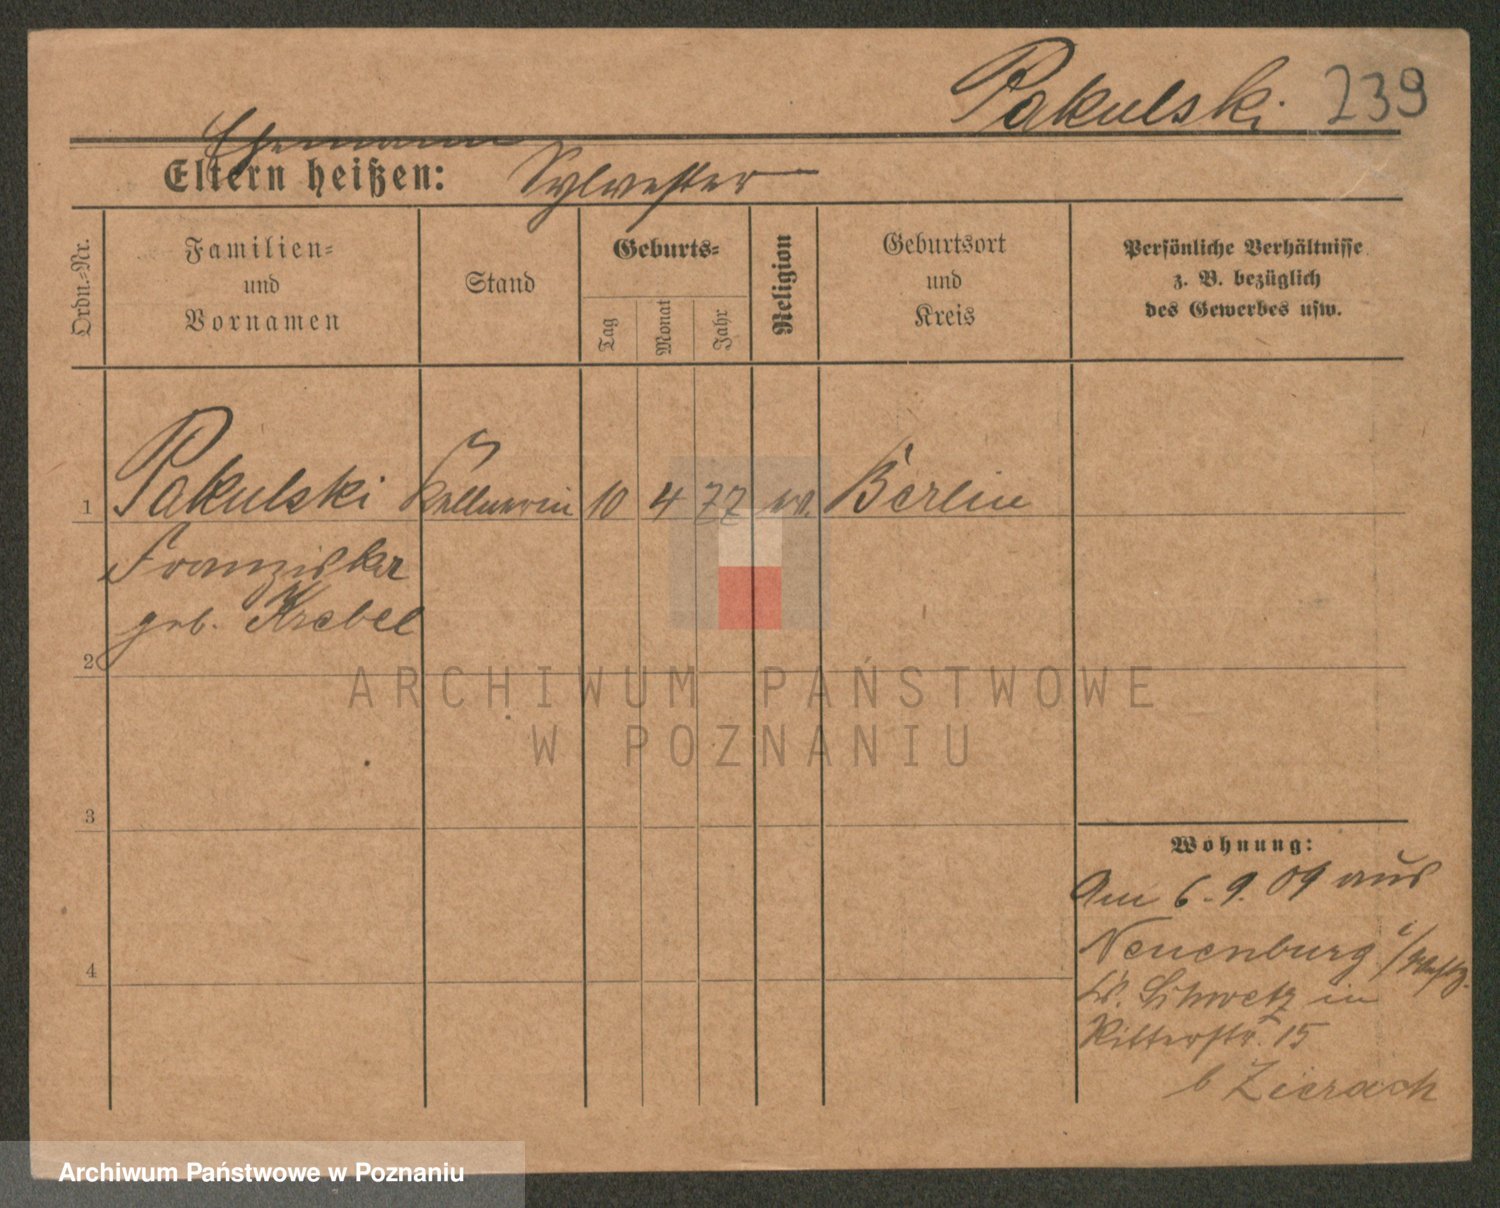 Pakulski. 239
Ehemann
Eltern heißen: Sylvester
Ordn.-Nr.
Familien-
und
Vornamen
Stand
Geburts-
Tag
Monat
Jahr
Religion
Geburtsort
und
Kreis
Persönliche Verhältnisse
z. B. bezüglich
des Gewerbes usw.
1 Pakulski Kellnerin 10 4 77 Berlin
Franziska
geb. Krebel
2
3
4
Wohnung:
Am 6.9.09 aus
Neuenburg i/Westp.
Kr. Schwetz in
Ritterstr. 15
b Zierach
ARCHIWUM PAŃSTWOWE
W POZNANIU
Archiwum Państwowe w Poznaniu